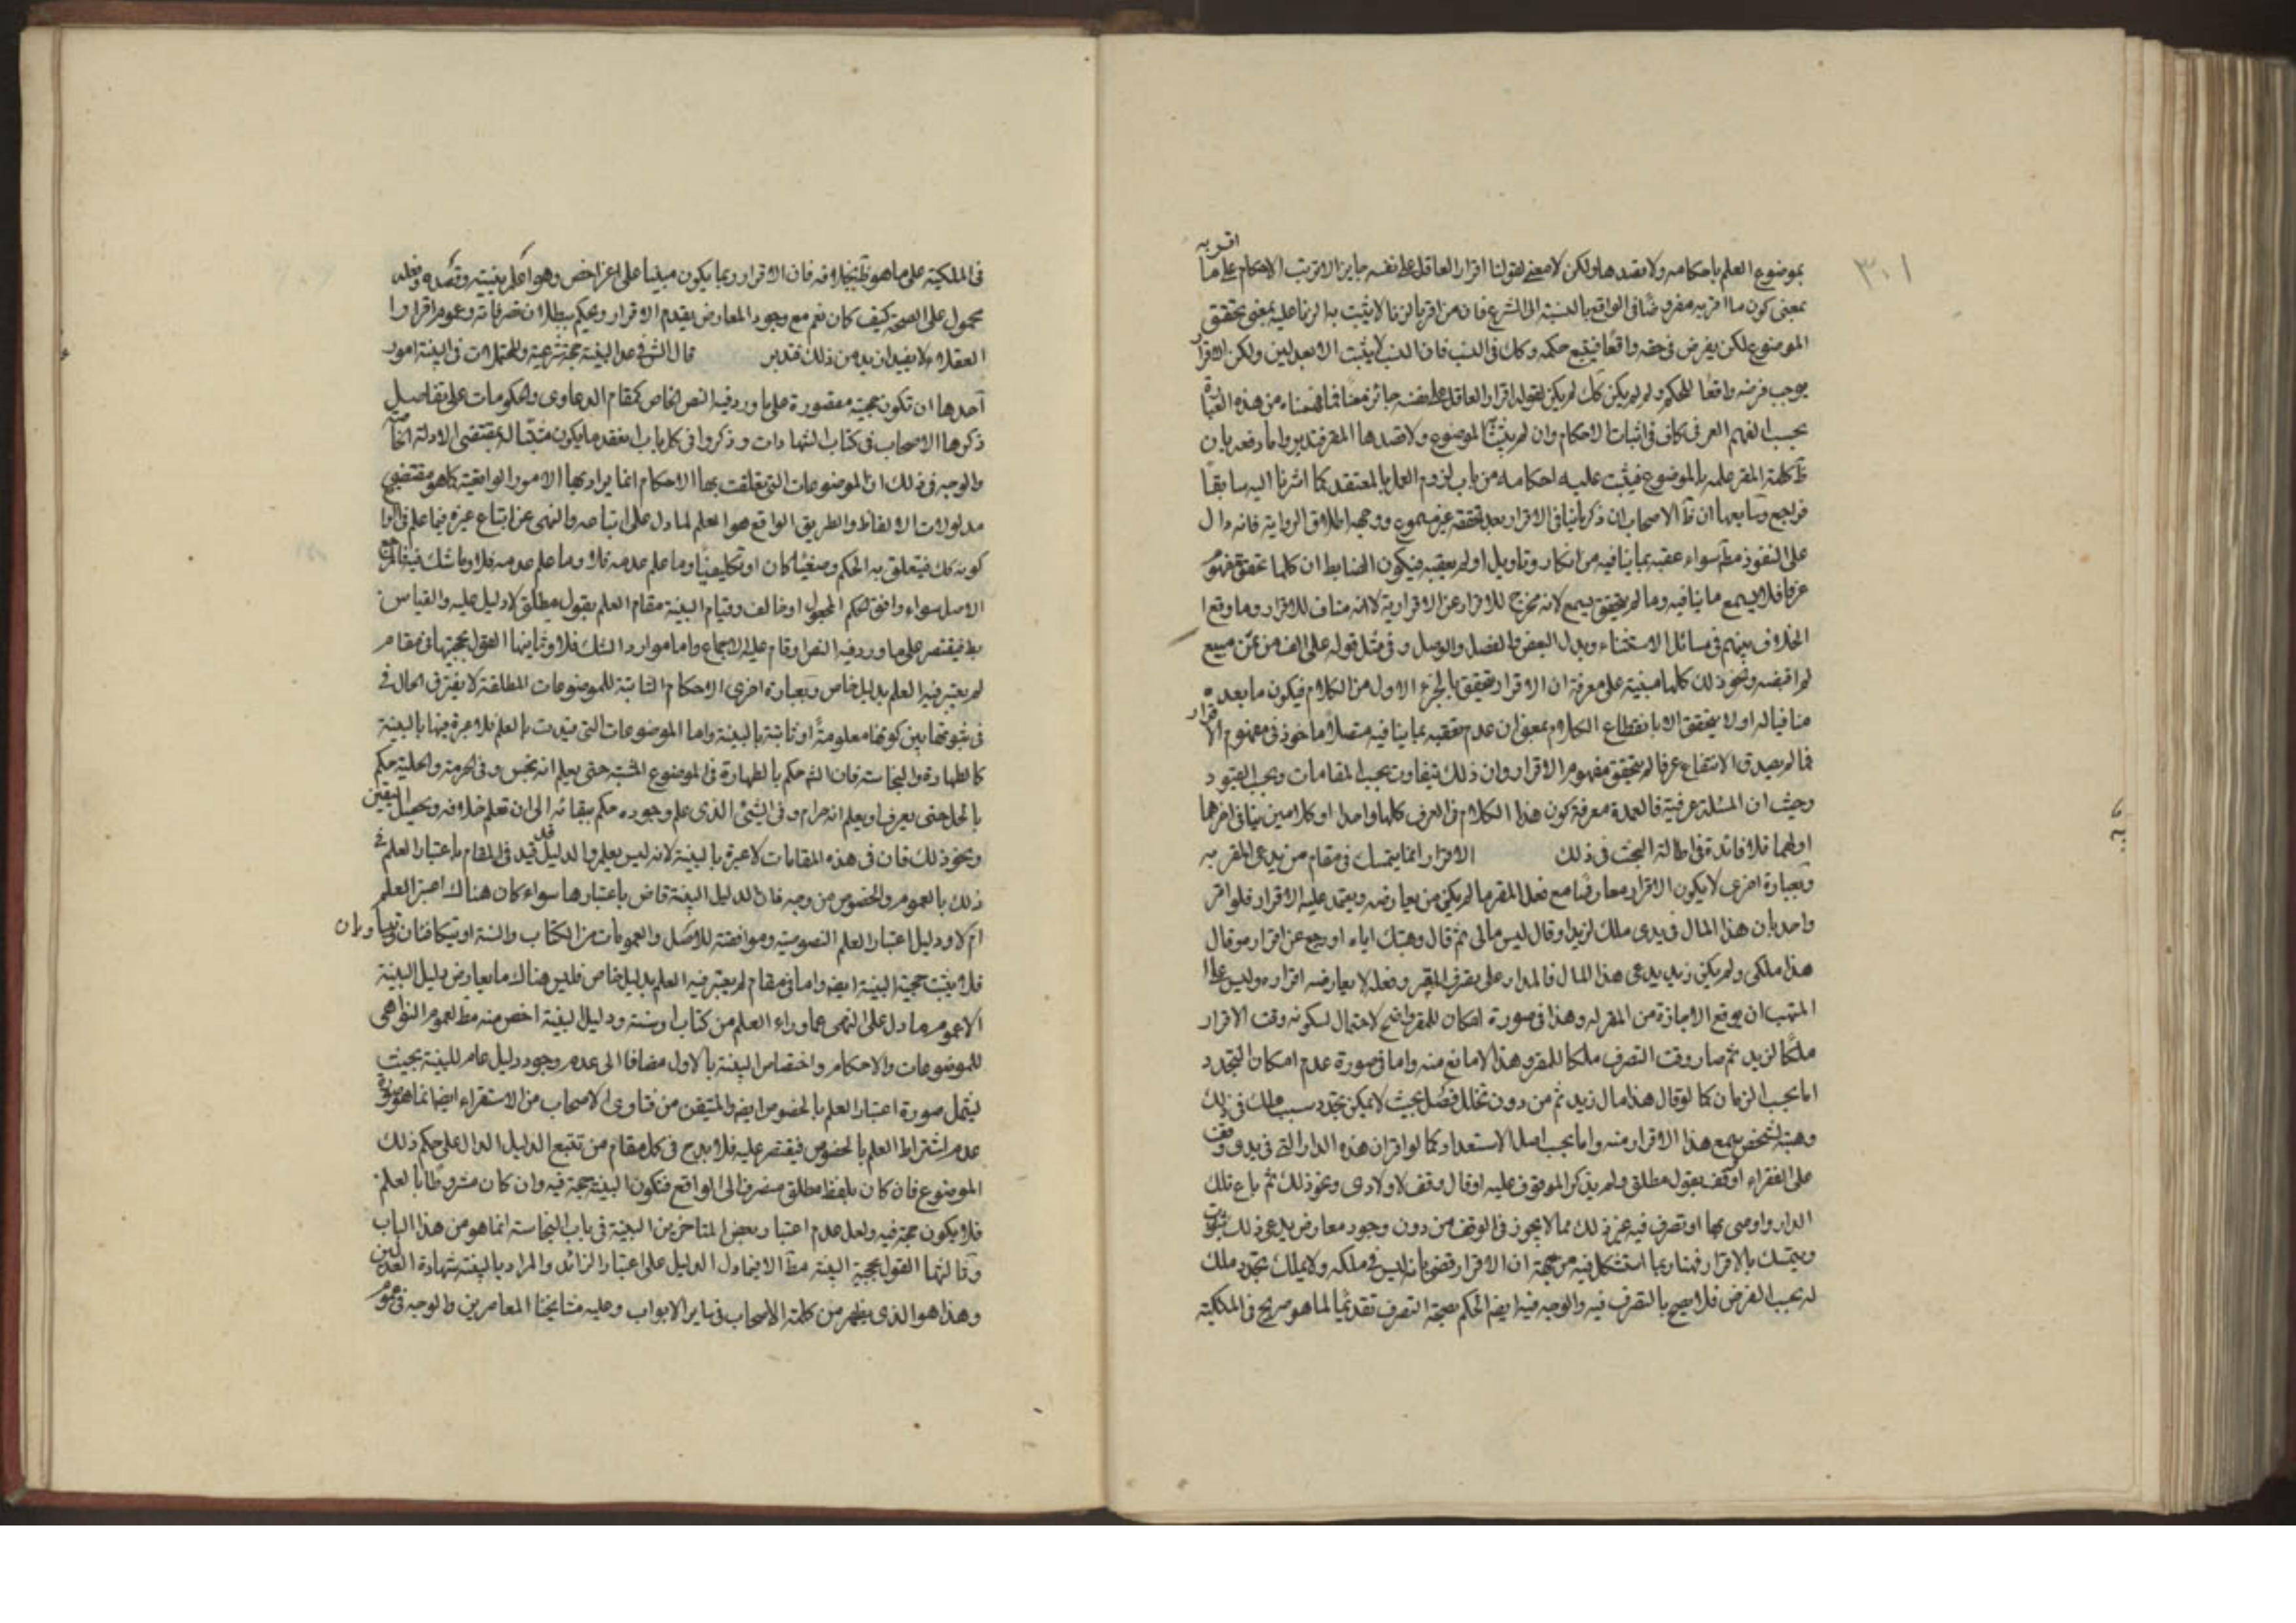 ٣٠١
اقر به
بموضوع العلم باحكامه ولا بقصدها ولكن لا معنى لقولنا اقرار العاقل على نفسه جايز الا ترتب الاحكام على ما
بمعنى كون ما اقر به مفروضا فى الواقع بالنسبة الى الشرع فان من اقر بالزنا لا يثبت به الزنا عليه بمعنى تحقق
الموضوع لكن يفرض فى حقه واقعا فيتبع حكمه وكك فى النسب فان النسب لا يثبت الا بعدلين ولكن الاقرار
يوجب فرضه واقعا للحكم ولو لم يكن كك لم يكن لقوله اقرار العاقل على نفسه جائز معنا فما فهمناه من هذه العبارة
بحسب الفهم العرفى كاف فى اثبات الاحكام وان لم يثبت الموضوع ولا قصدها المقر فتدبر واما دفعه بان
ظ كلمة المقر علمه بالموضوع فيثبت عليه احكامه من باب لزوم العمل بالمعتقد كما اشرنا اليه سابقا
فراجع وسابعها ان ظ الاصحاب ان ذكر ما ينافى الاقرار بعد تحققه غير مسموع ووجهه اطلاق الرواية فانه دال
على النفوذ مط سواء عقبه بما ينافيه من انكار وتاويل او لم يعقبه فيكون الضابط ان كلما تحقق مفهومه
عرفا فلا يسمع ما ينافيه وما لم يتحقق يسمع لانه مخرج للاقرار عن الاقرارية لا انه مناف للاقرار وما وقع
الخلاف بينهم فى مسائل الاستثناء وبدل البعض والفصل والوصل وفى مثل قوله على الف من ثمن مبيع
لم اقبضه ونحو ذلك كلها مبنية على معرفة ان الاقرار يتحقق بالجزء الاول من الكلام فيكون ما بعده
منافيا له او لا يتحقق الا بانقطاع الكلام بمعنى ان عدم تعقبه بما ينافيه متصلا ماخوذ فى مفهوم الاقرار
فما لم يصدق الانتفاء عرفا لم يتحقق مفهوم الاقرار وان ذلك يتفاوت بحسب المقامات وبحسب القيود
وحيث ان المسئلة عرفية فالعمدة معرفة كون هذا الكلام فى العرف كلها واحدا او كلامين ينافى اخرهما
اولهما فلا فائدة فى اطالة البحث فى ذلك الاقرار انما يتمسك فى مقام من يدعى المقر به
وبعبارة اخرى لا يكون الاقرار معارضا مع فعل المقر ما لم يكن من يعارضه ويعتمد عليه الاقرار فلو اقر
واحد بان هذا المال فى يدى ملك لزيد او قال ليس مالى ثم قال وهبتك اياه او رجع عن اقراره وقال
هذا ملكى ولم يكن زيد يدعى هذا المال فالمدار على تصرف المقر وفعله لا يعارضه اقراره وليس على
المتهب ان يوقع الاجازة من المقر له وهذا فى صورة امكان للمقر واضح لاحتمال لكونه وقت الاقرار
ملكا لزيد ثم صار وقت التصرف ملكا للمقر وهذا لا مانع منه واما فى صورة عدم امكان التجدد
اما بحسب الزمان كما لو قال هذا مال زيد ثم من دون تخلل فصل بحيث لا يمكن تجدد سبب ملك فى ذلك
وهبه لشخص يسمع هذا الاقرار منه واما بحسب اصل الاستعداد كما لو اقر ان هذه الدار التى فى يدى وقف
على الفقراء او وقف بقول مطلق ولم يذكر الموقوف عليه او قال وقف لاولادى ونحو ذلك ثم باع تلك
الدار او اوصى بها او تصرف فيه غير ذلك مما لا يجوز فى الوقف من دون وجود معارض يدعى ذلك
ويتمسك بالاقرار فهنا ربما استشكل فيه من جهة ان الاقرار قضى بانه ليس فى ملكه ولا يملك بتجدد ملك
له بحسب الفرض فلا يصح بالتصرف فيه والوجه فيه ايضا الحكم بصحة التصرف تقديما لما هو صريح فى الملكية
فى الملكية على ما هو ظ بخلافه فان الاقرار ربما يكون مبنيا على اغراض وهو اعلم بنيته وقصده وفعله
محمول على الصحة كيف كان نعم مع وجود المعارض يقدم الاقرار ويحكم ببطلان تصرفاته وعموم اقرار
العقلاء لا يفيد ازيد من ذلك فتدبر قال الش فى عد البينة حجة شرعية والمحتملات فى البينة امور
احدها ان تكون حجية مقصورة على ما ورد فيه النص الخاص كمقام الدعاوى والحكومات على تفاصيل
ذكرها الاصحاب فى كتاب الشهادات وذكروا فى كل باب انعقد ما يكون مثبتا له بمقتضى الادلة الخاصة
والوجه فى ذلك ان الموضوعات التى تعلقت بها الاحكام انما يراد بها الامور الواقعية كما هو مقتضى
مدلولات الالفاظ والطريق الواقع هو العلم لما دل على اتباعه والنهى عن اتباع غيره فيما علم فى الواقع
كونه كك فيتعلق به الحكم وضعيا كان او تكليفيا وما علم عدمه فلا وما علم عدمه فلا وما شك فيه فالمرجع
الاصل سواء وافق الحكم المجعول او خالف وقيام البينة مقام العلم بقول مطلق لا دليل عليه والقياس
بط فيقتصر على ما ورد فيه النص او قام عليه الاجماع واما موارد الشك فلا وثانيها القول بحجيتها فى مقام
لم يعتبر فيه العلم بدليل خاص وبعبارة اخرى الاحكام الثابتة للموضوعات المطلقة لا يفترق الحال فى
فى ثبوتها بين كونها معلومة او ثابتة بالبينة واما الموضوعات التى قيدت بالعلم فلا عبرة فيها بالبينة
كالطهارة والنجاسة فان الش حكم بالطهارة فى الموضوع المشتبه حتى يعلم انه نجس وفى الحرمة والحلية حكم
بالحل حتى يعرف او يعلم انه حرام وفى الشئ الذى علم وجوده حكم ببقائه الى ان تعلم خلافه ويحصل اليقين
ونحو ذلك فان فى هذه المقامات لا عبرة بالبينة لانه ليس بعلم والدليل قد قيد فى المقام باعتبار العلم فى
ذلك بالعموم والخصوص من وجه فان الدليل البينة قاض باعتبارها سواء كان هناك اعتبر العلم
ام لا ودليل اعتبار العلم النصوصية وموافقته للاصل والعمومات من الكتاب والسنة او يتكافئان ويتساويان
فلا يثبت حجية البينة ايضا واما فى مقام لم يعتبر فيه العلم بدليل خاص فليس هناك ما يعارض دليل البينة
الا عموم ما دل على النهى عما وراء العلم من كتاب او سنة ودليل البينة اخص منه مط لعموم النواهى
للموضوعات والاحكام واختصاص البينة بالاول مضافا الى عدم وجود دليل عام للبينة بحيث
ليشمل صورة اعتبار العلم بالخصوص ايضا والمتيقن من فتاوى الاصحاب من الاستقراء ايضا انما هو صورة
عدم اشتراط العلم بالخصوص فيقتصر عليه فلا بد ح فى كل مقام من تتبع الدليل الدال على حكم ذلك
الموضوع فان كان بلفظ مطلق منصرف الى الواقع فتكون البينة حجة فيه وان كان مشروطا بالعلم
فلا يكون حجة فيه ولعل عدم اعتبار بعض المتاخرين البينة فى باب النجاسة انما هو من هذا الباب
وثالثها القول بحجية البينة مط الا فيما دل الدليل على اعتبار الزائد والمراد بالبينة شهادة العدلين
وهذا هو الذى يظهر من كلمة الاصحاب فى ساير الابواب وعليه مشايخنا المعاصرين والوجه فى عموم